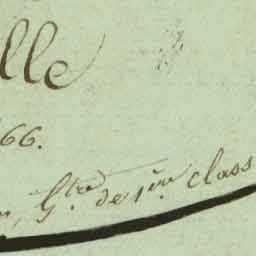 lle
66.
, G.tre de 1ère class